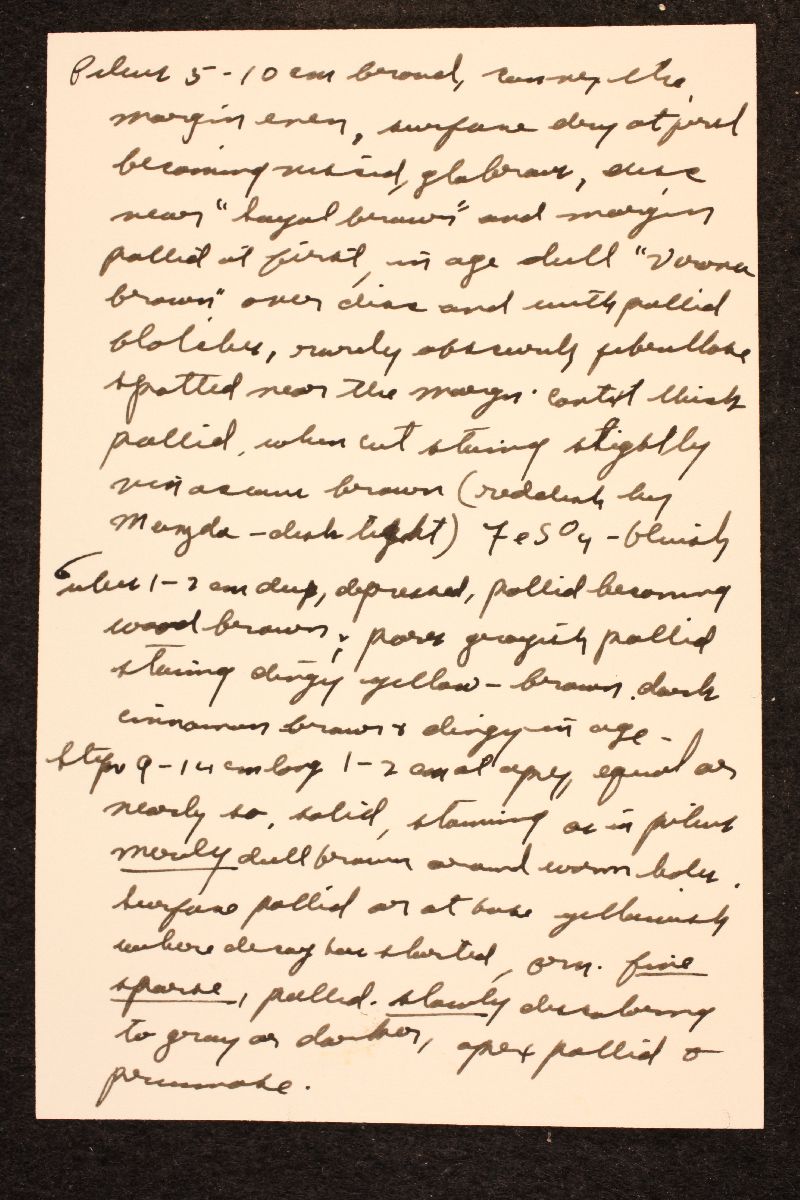 Pileus 5-10 cm broad, convex, the
margin even, surface dry at first
becoming viscid, glabrous, disc
near "sayal brown" and margin
pallid at first, in age dull "Verona
brown" over disc and with pallid
blotches, rarely obscurely fibrillose
spotted near the margin. context thick
pallid, when cut staining slightly
vinaceous brown (reddish by
Mazda - desk light) FeSO4 - bluish
Tubes 1-2 cm deep, depressed, pallid becoming
wood brown; pores grayish pallid
staining dingy yellow-brown, dark
cinnamon brown & dingy in age -
Stipe 9-14 cm long 1-2 cm at apex, equal or
nearly so, solid, staining as in pileus
merely dull brown around worm holes.
surface pallid or at base yellowish
where decay has started, orn. fine
sparse, pallid. slowly discoloring
to gray or darker, apex pallid &
pruinose.